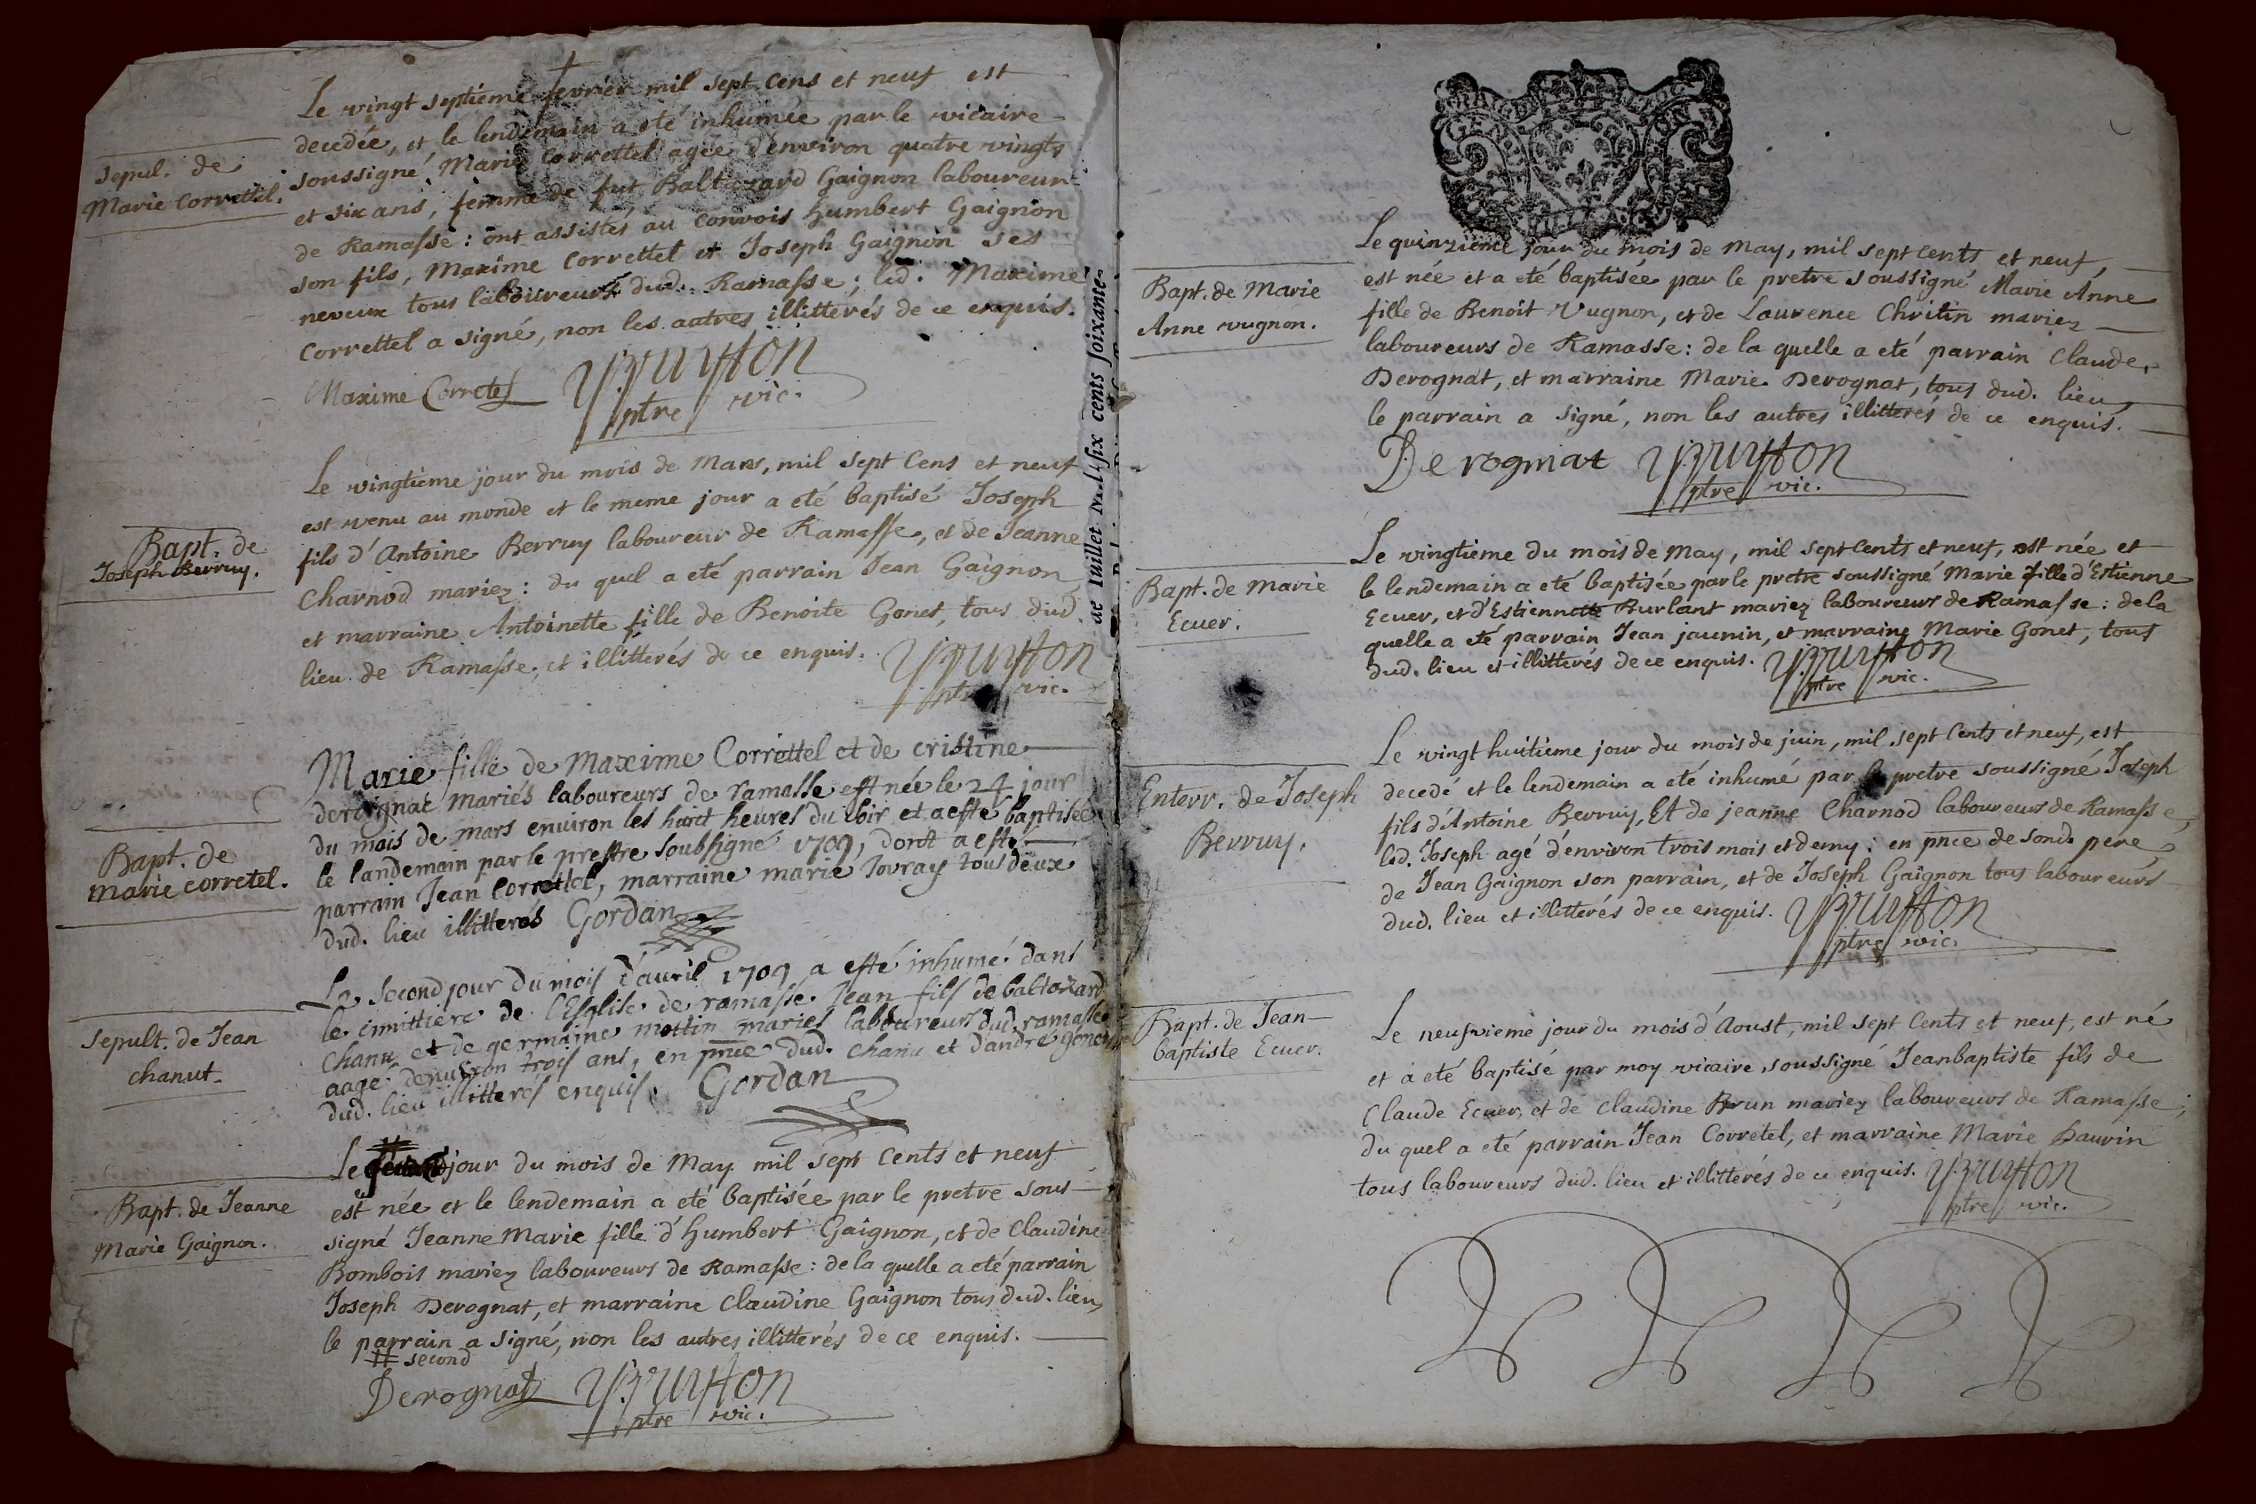 Le vingt septieme fevrier mil sept cens et neuf est
decedée, et le lendemain a eté inhumée par le vicaire
soussigné Marie Correttel agée d'environ quatre vingts
et six ans, femme de fut Baltazard Gaignon laboureur
de Ramasse : ont assistés au convois Humbert Gaignon
son fils, Maxime Correttel et Joseph Gaignon ses
neveux tous laboureurs dud. Ramasse ; led. Maxime
Correttel a signé, non les autres illitterés de ce enquis.
Sepul. de
Marie Correttel.
Maxime Corretel
ptre vic.
Le vingtieme jour du mois de Mars, mil sept cens et neuf
est venu au monde et le meme jour a eté baptisé Joseph
fils d'Antoine Berruy laboureur de Ramasse, et de Jeanne
Charnod mariez : du quel a eté parrain Jean Gaignon
et marraine Antoinette fille de Benoite Gonet, tous dud.
lieu de Ramasse, et illitterés de ce enquis.
Bapt. de
Joseph Berruy.
ptre vic.
Marie fille de Maxime Correttel et de cristine
derognat mariés laboureurs de ramasse est née le 24 jour
du mois de mars environ les huit heures du soir et a esté baptisée
le landemain par le prestre soubsigné 1709, dont a esté
parrain Jean Correttel, marraine marie Jouray tous deux
dud. lieu illitterés Gordan
Bapt. de
Marie corretel.
Le second jour du mois d'avril 1709 a esté inhumé dans
le cimittiere de l'Esglise de ramasse Jean fils de baltazard
Chanu et de germaine mottin mariés laboureurs dud. ramasse
aagé denviron trois ans, en pnce dud. chanu et d'andré gonet
dud. lieu illitterés enquis. Gordan
Sepult. de Jean
chanut.
Le jour du mois de May mil sept cents et neuf
est née et le lendemain a eté baptisée par le pretre sous
signé Jeanne Marie fille d'Humbert Gaignon, et de Claudine
Bombois mariez laboureurs de Ramasse : de la quelle a eté parrain
Joseph Derognat, et marraine Claudine Gaignon tous dud. lieu,
le parrain a signé, non les autres illitterés de ce enquis.
# second
Bapt. de Jeanne
Marie Gaignon.
Derognat
ptre vic.
de Juillet Mil six cents soixante
Le quinzieme jour du mois de May, mil sept cents et neuf,
est née et a eté baptisée par le pretre soussigné Marie Anne
fille de Benoit Vugnon, et de Laurence Chritin mariez
laboureurs de Ramasse : de la quelle a eté parrain Claude
Derognat, et marraine Marie Derognat, tous dud. lieu,
le parrain a signé, non les autres illitterés de ce enquis.
Bapt. de Marie
Anne vugnon.
Derognat
ptre vic.
Le vingtieme du mois de May, mil sept cents et neuf, est née et
le lendemain a eté baptisée par le pretre soussigné Marie fille d'Estienne
Ecuer, et d'Estiennette Burlant mariez laboureurs de Ramasse : de la
quelle a eté parrain Jean jaunin, et marraine Marie Gonet, tous
dud. lieu et illitterés de ce enquis.
Bapt. de Marie
Ecuer.
ptre vic.
Le vingt huitieme jour du mois de juin, mil sept cents et neuf, est
decedé et le lendemain a eté inhumé par le pretre soussigné Joseph
fils d'Antoine Berruy, Et de jeanne Charnod laboureurs de Ramasse,
led. Joseph agé d'environ trois mois et demy : en pnce de sond. pere
de Jean Gaignon son parrain, et de Joseph Gaignon tous laboureurs
dud. lieu et illitterés de ce enquis.
Enterr. de Joseph
Berruy.
ptre vic.
Le neufvieme jour du mois d'Aoust, mil sept cents et neuf, est né
et a eté baptisé par moy vicaire soussigné Jeanbaptiste fils de
Claude Ecuer, et de Claudine Brun mariez laboureurs de Ramasse ;
du quel a eté parrain Jean Corretel, et marraine Marie Daurin
tous laboureurs dud. lieu et illitterés de ce enquis.
Bapt. de Jean-
baptiste Ecuer.
ptre vic.